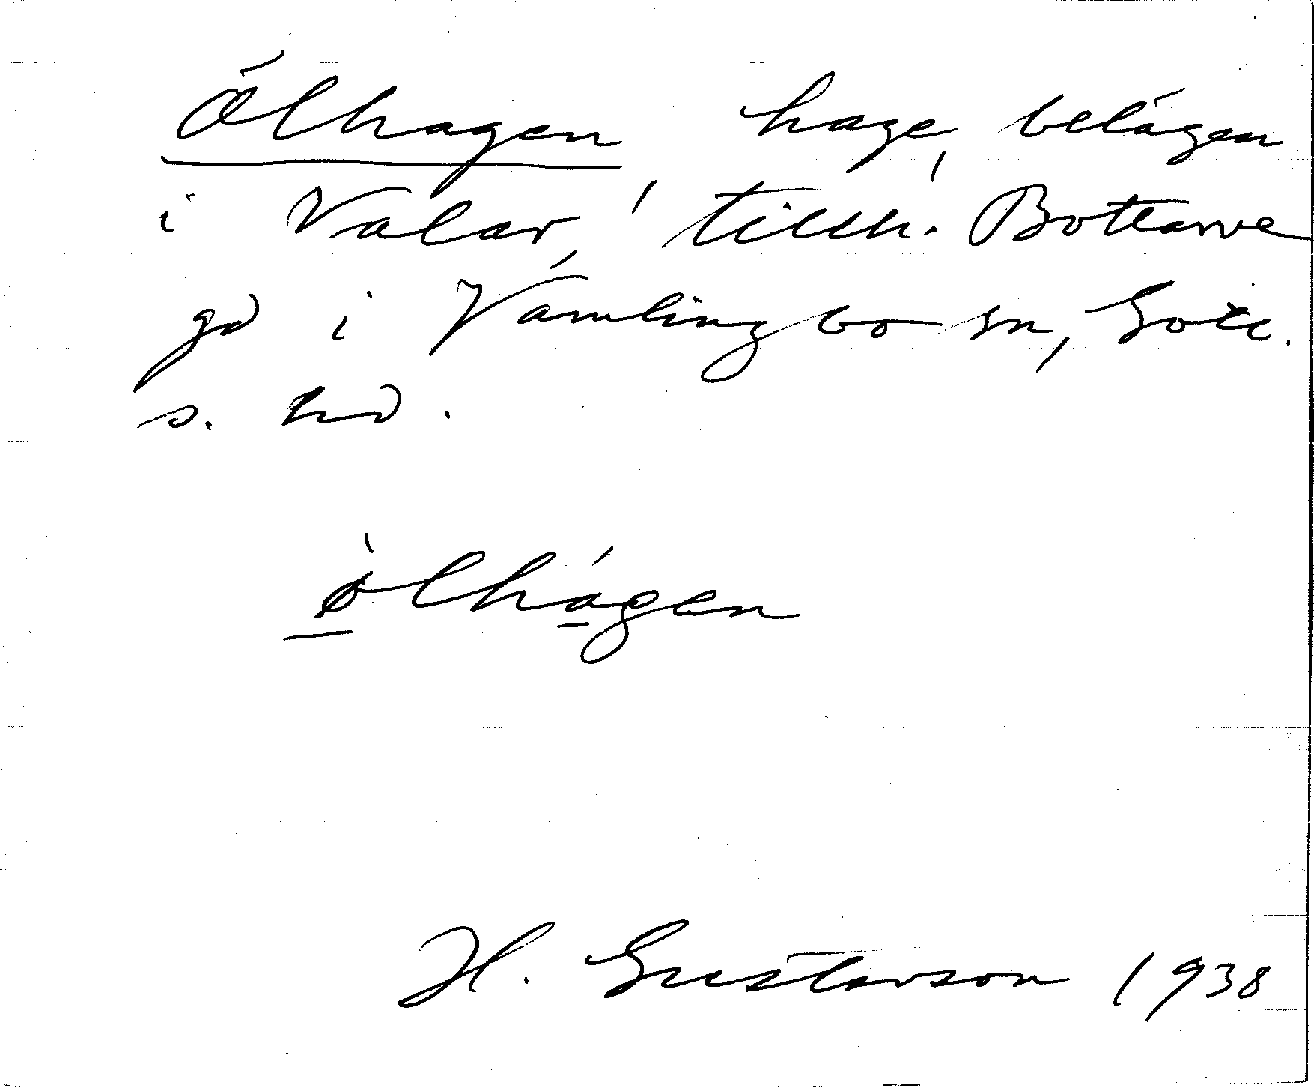 Ölhagen, hage, belägen
i Valar, tillh. Bottarve
gd i Vamlingbo sn, Gotl.
s. hd.
ölhagen
H. Gustavson 1938